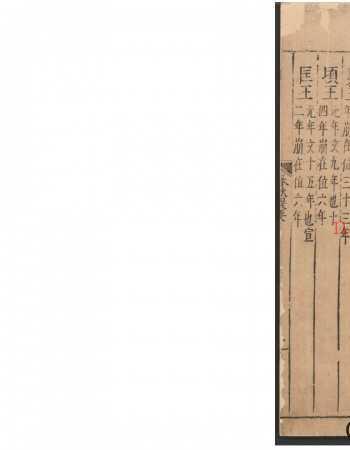 年崩在位三十三年
頃王
元年文九年也十
四年崩在位六年
匡王
元年文十五年也宣
二年崩在位六年
春秋提要